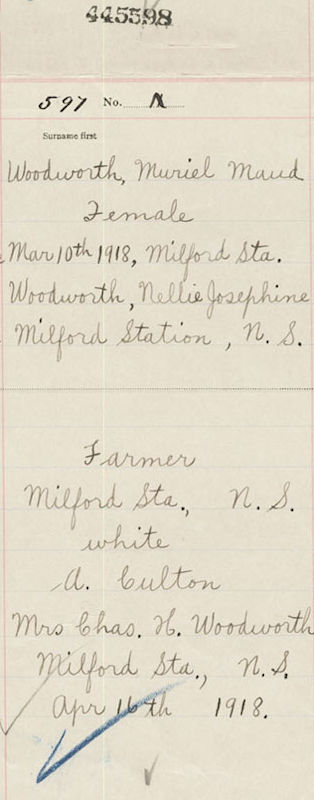 445598
597 No.
Surname first
Woodworth, Muriel Maud
Female
Mar 10th 1918, Milford Sta.
Woodworth, Nellie Josephine
Milford Station, N. S.
Farmer
Milford Sta., N. S.
white
A. Culton
Mrs Chas. H. Woodworth
Milford Sta., N. S.
Apr 16th 1918.